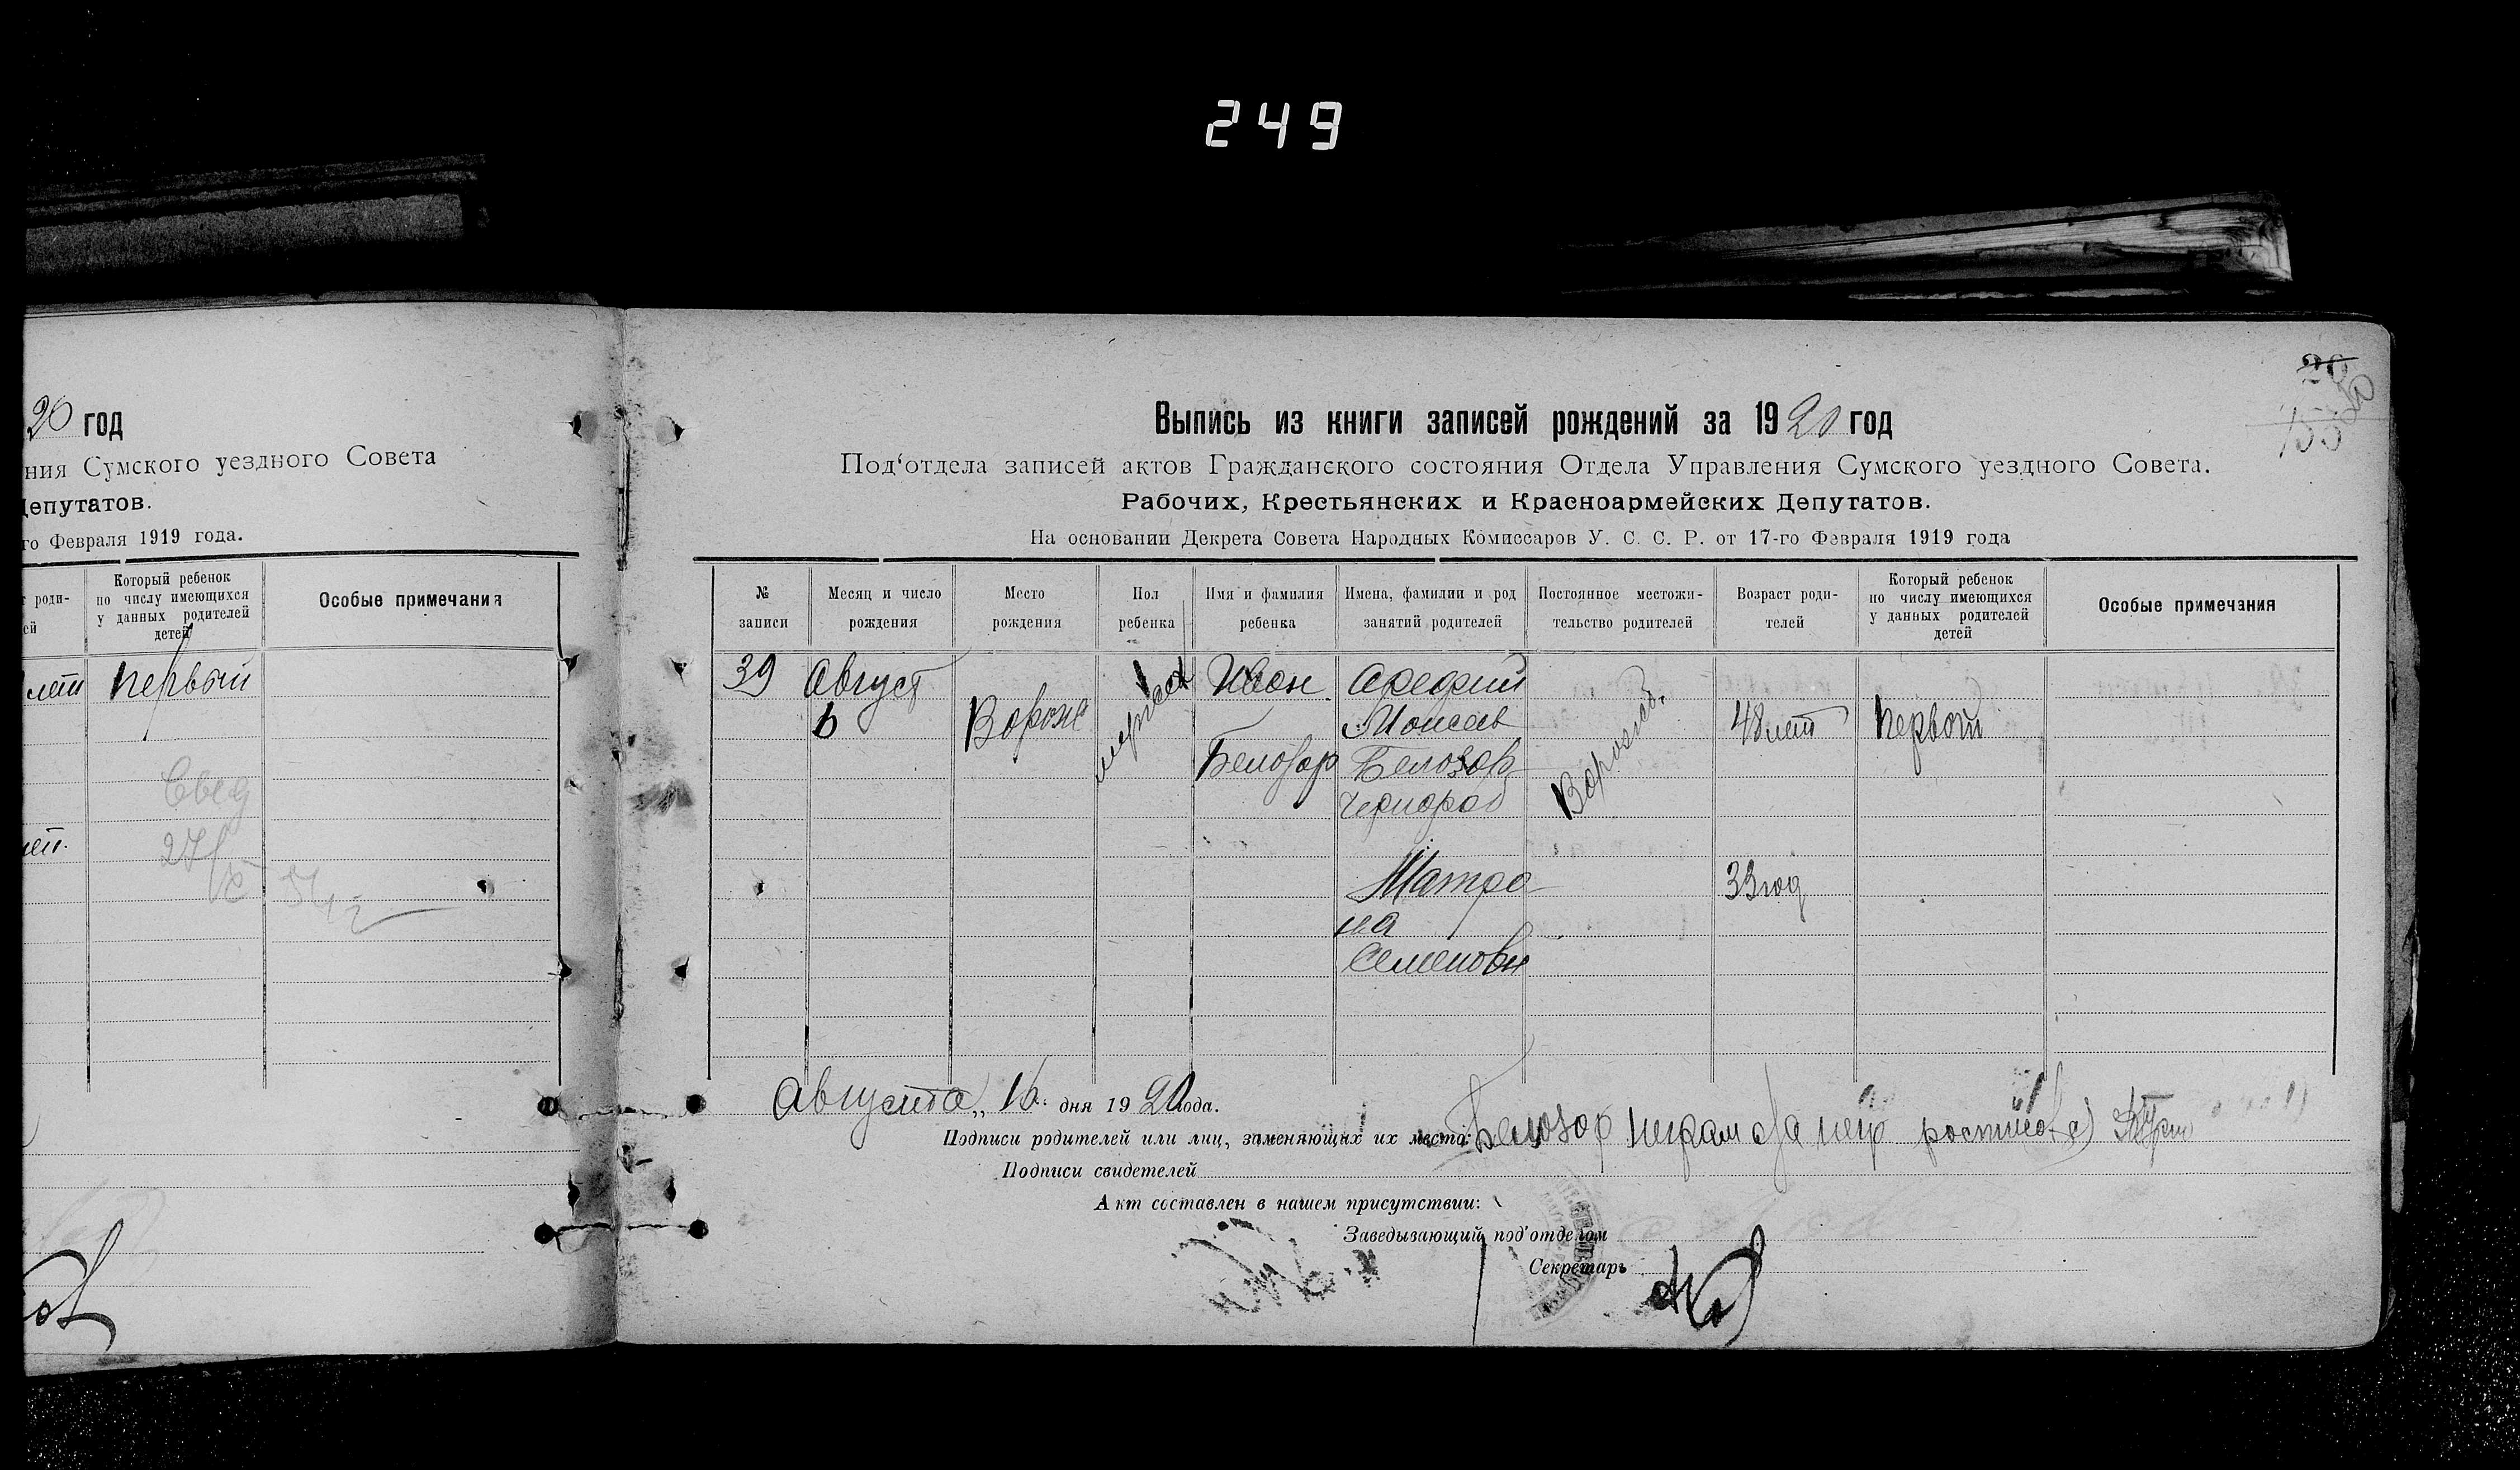 249
20 год
ния Сумского уездного Совета
Депутатов.
го Февраля 1919 года.
роди-
ей
Который ребенок
по числу имеющихся
у данных родителей
детей
Особые примечания
лет первый
Свед
27/X
26
Выпись из книги записей рождений за 1920 год
Под‘отдела записей актов Гражданского состояния Отдела Управления Сумского уездного Совета.
Рабочих, Крестьянских и Красноармейских Депутатов.
На основании Декрета Совета Народных Комиссаров У. С. С. Р. от 17-го Февраля 1919 года
№
записи
Месяц и число
рождения
Место
рождения
Пол
ребенка
Имя и фамилия
ребенка
Имена, фамилии и род
занятий родителей
Постоянное местожи-
тельство родителей
Возраст роди-
телей
Который ребенок
по числу имеющихся
у данных родителей
детей
Особые примечания
39
Август
6
Ворожб
Иван
Белозор
Моисеев
Белозор
чернораб
Матро-
на
Семеновн
48 лет
33 год
первый
Августа „ 16 дня 1920 года.
Подписи родителей или лиц, заменяющих их место: Белозор неграм за него
Подписи свидетелей
Акт составлен в нашем присутствии:
Заведывающий под'отделом
Секретарь